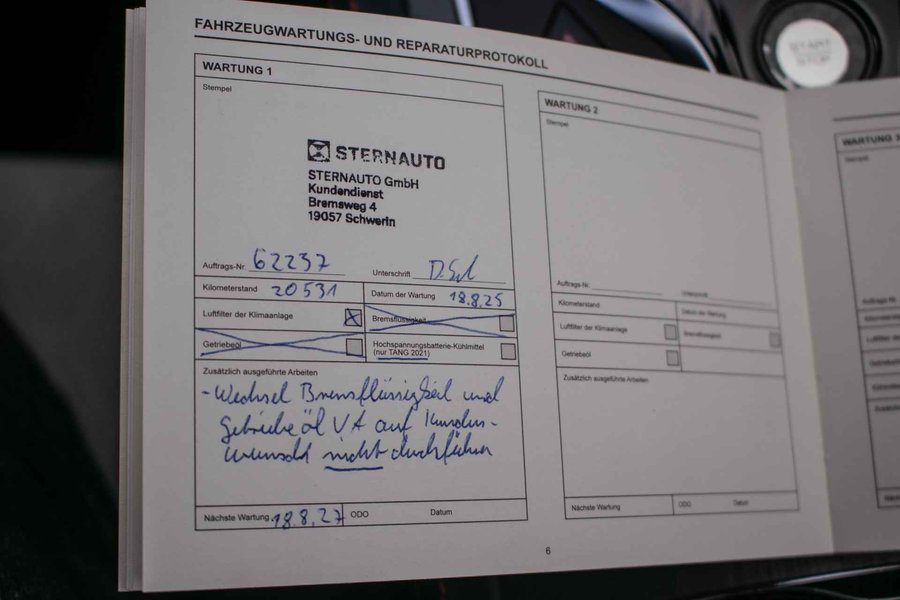 FAHRZEUGWARTUNGS- UND REPARATURPROTOKOLL
WARTUNG 1
Stempel
STERNAUTO
STERNAUTO GmbH
Kundendienst
Bremsweg 4
19057 Schwerin
Auftrags-Nr. 62237
Unterschrift
Kilometerstand 20531
Datum der Wartung 18.8.25
Luftfilter der Klimaanlage
Bremsflüssigkeit
Getriebeöl
Hochspannungsbatterie-Kühlmittel
(nur TANG 2021)
Zusätzlich ausgeführte Arbeiten
- Wechsel Bremsflüssigkeit und
Getriebeöl VA auf Kunden-
wunsch nicht durchführen
Nächste Wartung 18.8.27
ODO
Datum
WARTUNG 2
Stempel
Auftrags-Nr.
Unterschrift
Kilometerstand
Datum der Wartung
Luftfilter der Klimaanlage
Bremsflüssigkeit
Getriebeöl
Zusätzlich ausgeführte Arbeiten
Nächste Wartung
ODO
Datum
6
WARTUNG
Stempel
Auftrags-Nr.
START
STOP